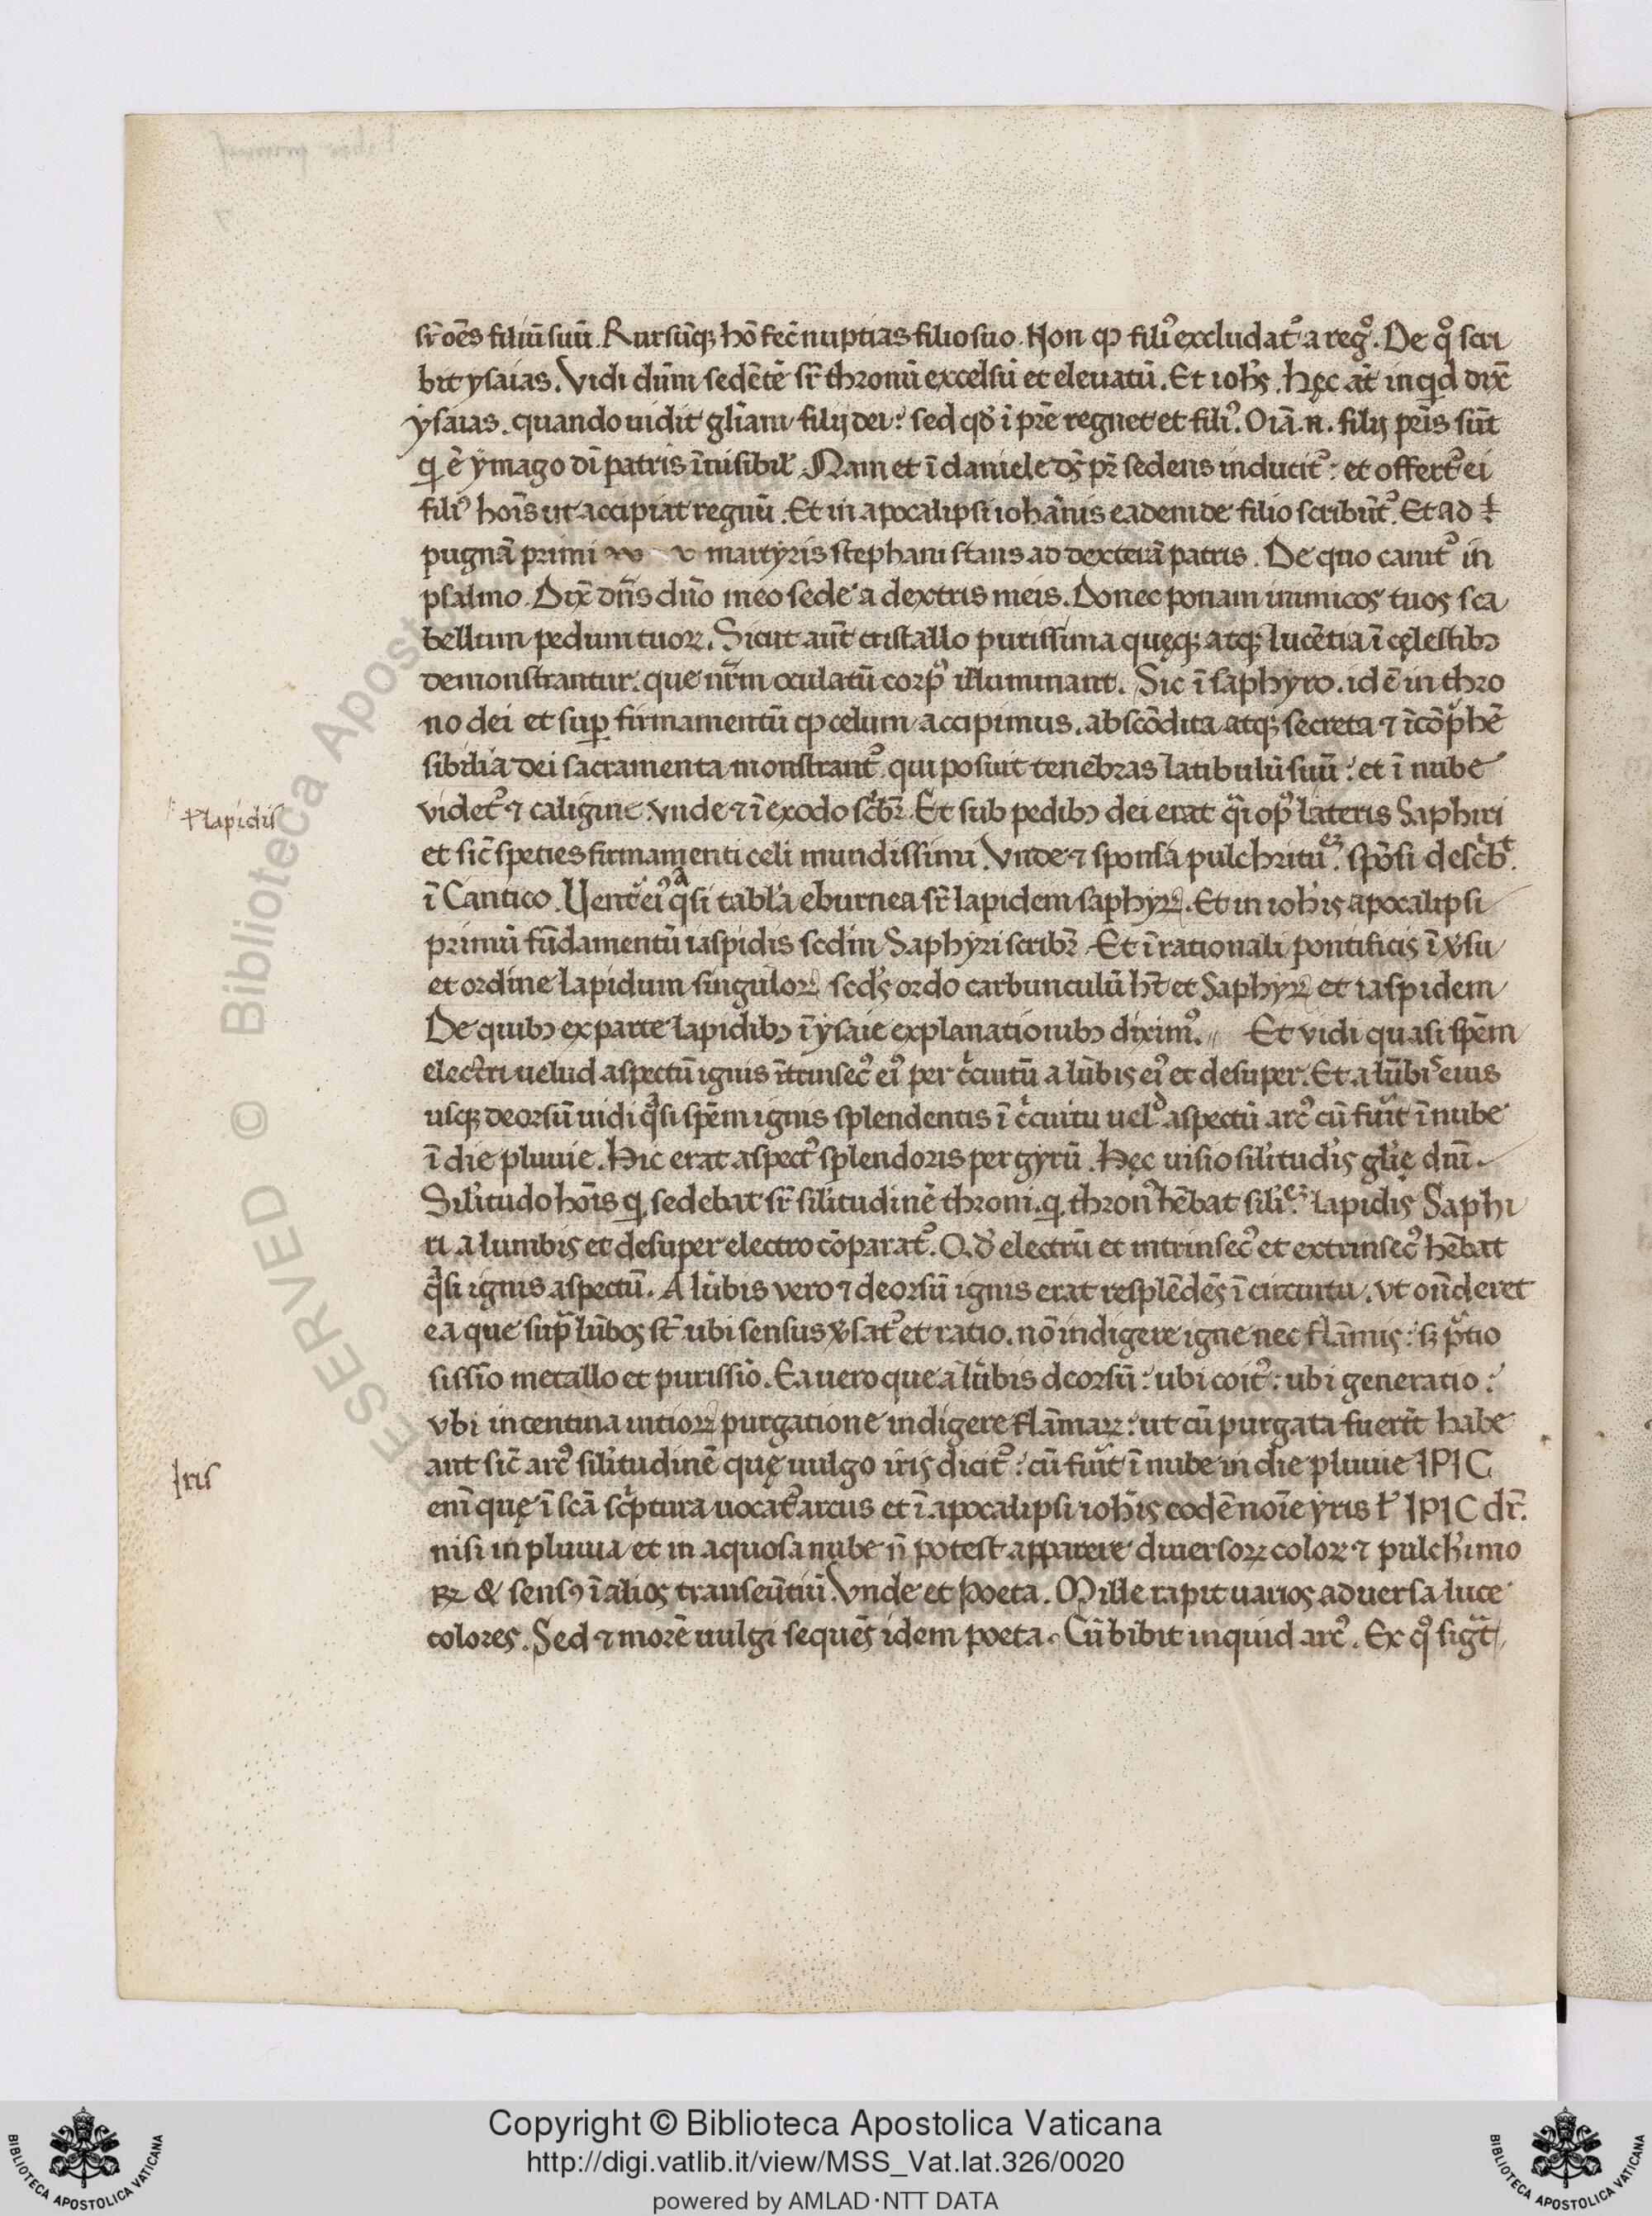 sr̄ oēs filiū suū. Rursūqꝫ hō fec̄ nuptias filio suo. Non ꝙ filiꝰ excludatᷣ a regͦ. De qͦ scri
bit ysaias. Vidi dūm sedētē sr̄ thronū excelsū et eleuatū. Et ioh̄s. hęc at̄ inqid dix̄
ysaias. quando uidit glīam filij dei: sed qd̓ ī pr̄e regnet et filiꝰ. Oīa .n. filij pr̄is sūt
qi ē ymago dī patris īuisibil̓. Nam et ī daniele ds̄ pr̄ sedens inducitᷣ: et offertᷣ ei
filiꝰ hoīs ut accipiat regnū. Et in apocalipsi iohānis eadem de filio scribūtᷣ. Et ad
pugnā primi martyris stephani stans ad dexterā patris. De quo canitᷣ in
psalmo. Dix̄ dn̄s dn̄o meo sede a dextris meis. Donec ponam inimicos tuos sca
bellum pedum tuoꝝ. Sicut aūt cristallo purissima quęqꝫ atqꝫ lucētia ī cęlestibꝫ
demonstrantur. que nr̄m oculatū corpꝰ illuminant. Sic ī saphyro. id ē in thro
no dei et suꝑ firmamentū ꝙ celum accipimus. abscōdita atqꝫ secreta ⁊ īcōp̄hē
sibilia dei sacramenta monstrantᷣ. qui posuit tenebras latibulū suū: et ī nube
videtᷣ ⁊ caligine. Vnde ⁊ ī exodo sc̓br̄. Et sub pedibꝫ dei erat qͣi opꝰ lateris Saphiri
et sic̄ species firmamenti celi mundissimi. Vnde ⁊ sponsa pulchrituꝫ̄ spōsi desc̓bt̄
ī Cantico. Vent̓ eiꝰ qͣsi tabl̓a eburnea sr̄ lapidem saphyꝝ. Et in ioh̄is apocalipsi
primū fūdamentū iaspidis sedm Saphyri scribr̄. Et ī rationali pontificis ī ꝟsu
et ordine lapidum singuloꝝ scd̓s ordo carbunculū ht̄ et Saphyꝝ et iaspidem
De quibꝫ ex parte lapidibꝫ ī ysaie explanationibꝫ diximꝰ. Et vidi quasi spēm
electri uelud aspectū ignis ītrinsecꝰ eiꝰ per c̓cuitū a lūbis eiꝰ et desuper. Et a lūbis eius
usqꝫ deorsū uidi qͣsi spēm ignis splendentis ī c̓cuitu uelᵈ aspectū arcꝰ cū fuit̓ ī nube
ī die pluuie. Hic erat aspectꝰ splendoris per gyrū. Hęc uisio sil̓itudis gl̓ię dn̄i.
Sil̓itudo hoīs qi sedebat sr̄ sil̓itudinē throni. qi thronꝰ hēbat sil̓iꝫ̄ lapidis Saphi
ri a lumbis et desuper electro cōparatᷣ. Qd̓ electrū et intrinsecꝰ et extrinsecꝰ hēbat
qͣsi ignis aspectū. A lūbis vero ⁊ deorsū ignis erat resplēdēs ī circuitu. vt on̄deret
ea que supͣ lūbos st̄ ubi sensus ꝟsatᷣ et ratio. nō indigere igne nec flāmis: sꝫ p̄tio
sissīo metallo et purissīo. Ea uero que a lūbis deorsū: ubi coitꝰ: ubi generatio:
vbi incentiua uitioꝝ purgatione indigere flāmaꝝ: ut cū purgata fuerīt habe
ant sic̄ arcꝰ sil̓itudinē quę uulgo iris dicitᷣ: cū fuit̓ ī nube in die pluuie IPIC
enī quę ī scā sc̓ptura uocatᷣ arcus et ī apocalipsi ioh̄is eodē noīe yris l̓ IPIC dr̄.
nisi in pluuia et in aquosa nube n̄ potest apparere diuersoꝝ coloꝝ ⁊ pulch̓imo
ꝝ & sensꝰ ī alios transeūtiū. Vnde et poeta. Mille rapit uarios aduersa luce
colores. Sed ⁊ morē uulgi sequēs idem poeta. Cū bibit inquid arcꝰ. Ex qͦ sigt̄
lapidis
Iris
Copyright © Biblioteca Apostolica Vaticana
http://digi.vatlib.it/view/MSS_Vat.lat.326/0020
powered by AMLAD·NTT DATA